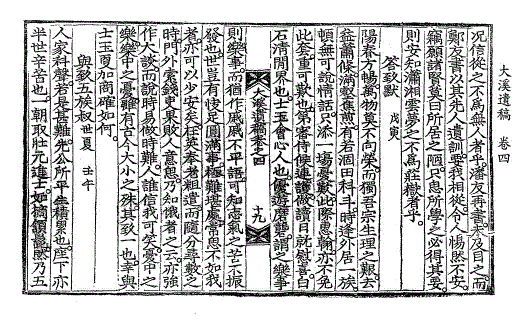 大溪遺稿 卷四
況信從之不爲無人者乎潘友再書未及目之而
鄭友書以其先人遺訓要我相從令人惕然不安
竊願諸賢莫曰所居之陋只患所學之必得其要
則安知瀟湘雲夢之不爲莊嶽者乎
答致猷 戊寅
陽春方暢萬物莫不向榮而獨吾宗生理之艱去
益蕭條滿數舊蕉若有涸田科斗時逢外居一族
頓無可說情話只添一場憂歎此際惠翰亦不免
此套重可歎也第審侍候連護做讀日就慰喜白
石淸閒界也士玉會心人也優遊磨礱謂之樂事
大溪遺稿卷之四 十九
則樂事而猶作戚戚不平語可知志氣之苦不振
發也世豈有悛足圓滿事極難堪處常思不如我
者亦可以少安矣狂英奉老租遣而隨分尋數之
時門外索錢吏果敗人意思乃知俄者之云亦強
作大談而說時易做時難人誰信我可笑憂中之
樂樂中之憂雖有古今大小之殊其致一也幸與
士玉夏加商確如何
與致五族叔 世夏 壬午
人家科聲若是甚難先公所平生積累也座下亦
半世辛苦也一朝取壯元進士如摘頷髭然乃五